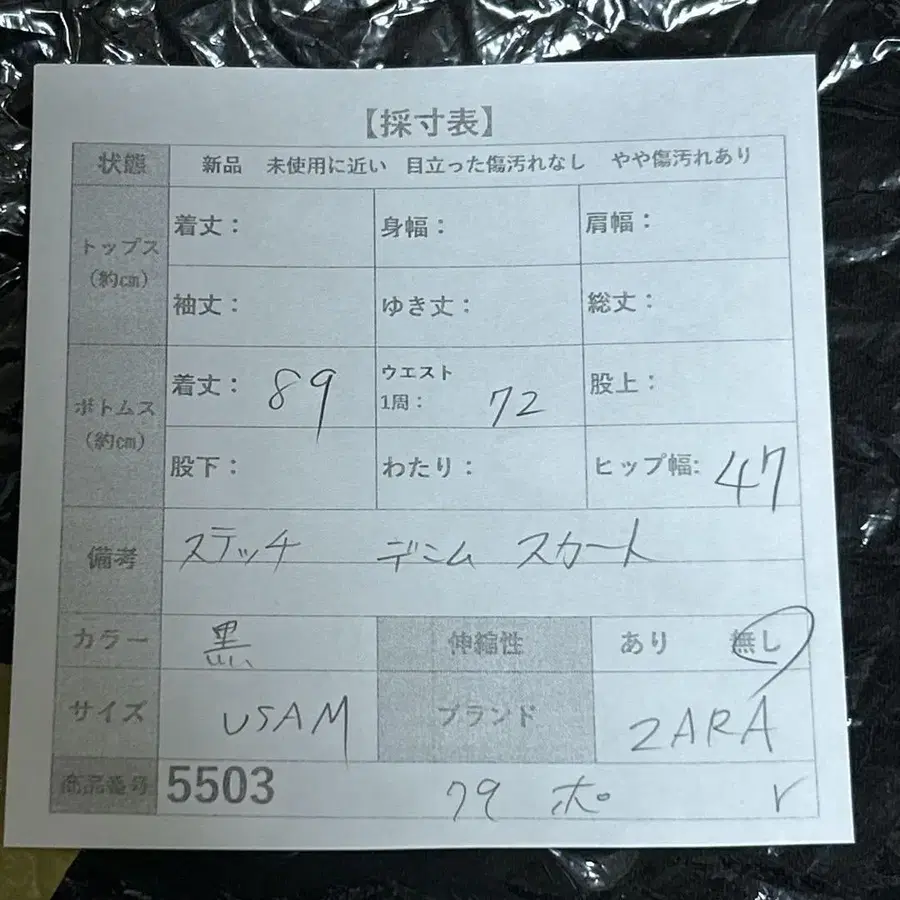 【採寸表】
状態 新品 未使用に近い 目立った傷汚れなし やや傷汚れあり
トップス(約cm) 着丈: 身幅: 肩幅:
袖丈: ゆき丈: 総丈:
ボトムス(約cm) 着丈: 89 ウエスト1周: 72 股上:
股下: わたり: ヒップ幅: 47
備考 ステッチ デニム スカート
カラー 黒 伸縮性 あり 無し
サイズ USAM ブランド ZARA
商品番号 5503 79 ポ